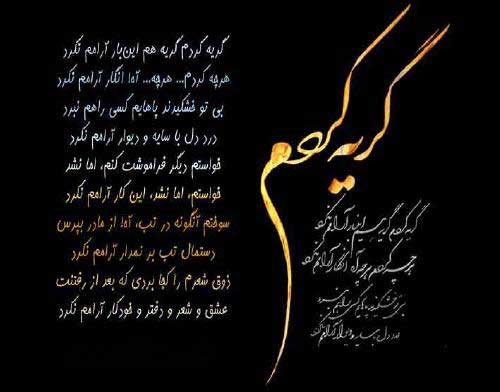 گریه کردم گریه هم این‌بار آرامم نکرد
هرچه کردم... هرچه... آه! انگار آرامم نکرد
بی تو خشکیدند پاهایم کسی راهم نبرد
درد دل با سایه و دیوار آرامم نکرد
خواستم دیگر فراموشت کنم، اما نشد
خواستم، اما نشد، این کار آرامم نکرد
سوختم آنگونه در تب، آه! از مادر بپرس
دستمال تب بر نمدار آرامم نکرد
ذوق شعرم را کجا بردی که بعد از رفتنت
عشق و شعر و دفتر و خودکار آرامم نکرد
گریه کردم
گریه کردم گریه هم اینبار آرامم نکرد
هر چه کردم هر چه آه انگار آرامم نکرد
بی تو خشکیدند پاهایم کسی راهم نبرد
درد دل با سایه و دیوار آرامم نکرد